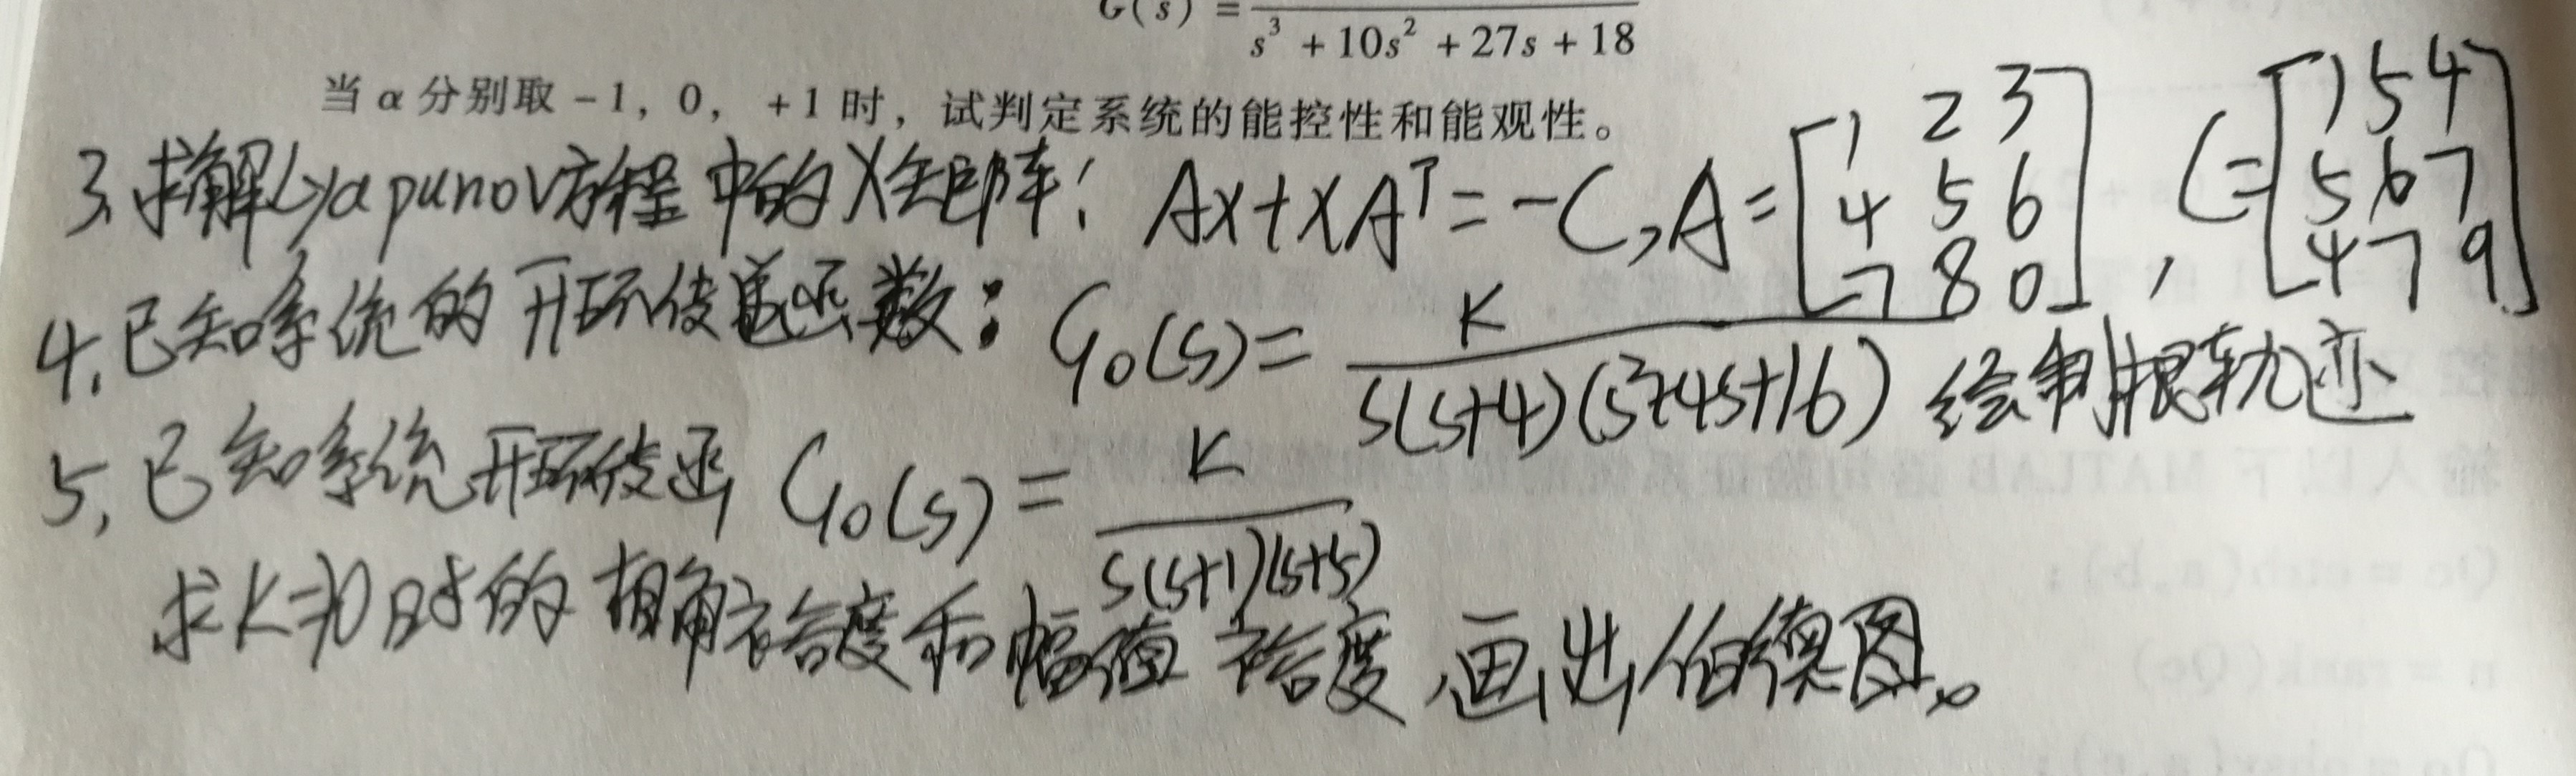 G(s) = ―――
s³ + 10s² + 27s + 18
当 α 分别取 -1, 0, +1 时, 试判定系统的能控性和能观性。
3. 求解Lyapunov方程中的X矩阵: AX+XAᵀ=-C, A=[1 2 3; 4 5 6; 7 8 0], C=[1 5 4; 5 6 7; 4 7 9]
4. 已知系统的开环传递函数: G₀(s)=K/(s(s+4)(s²+4s+16)) 绘制根轨迹
5. 已知系统开环传函 G₀(s)=K/(s(s+1)(s+5))
求K=10时的相角裕度和幅值裕度,画出伯德图。